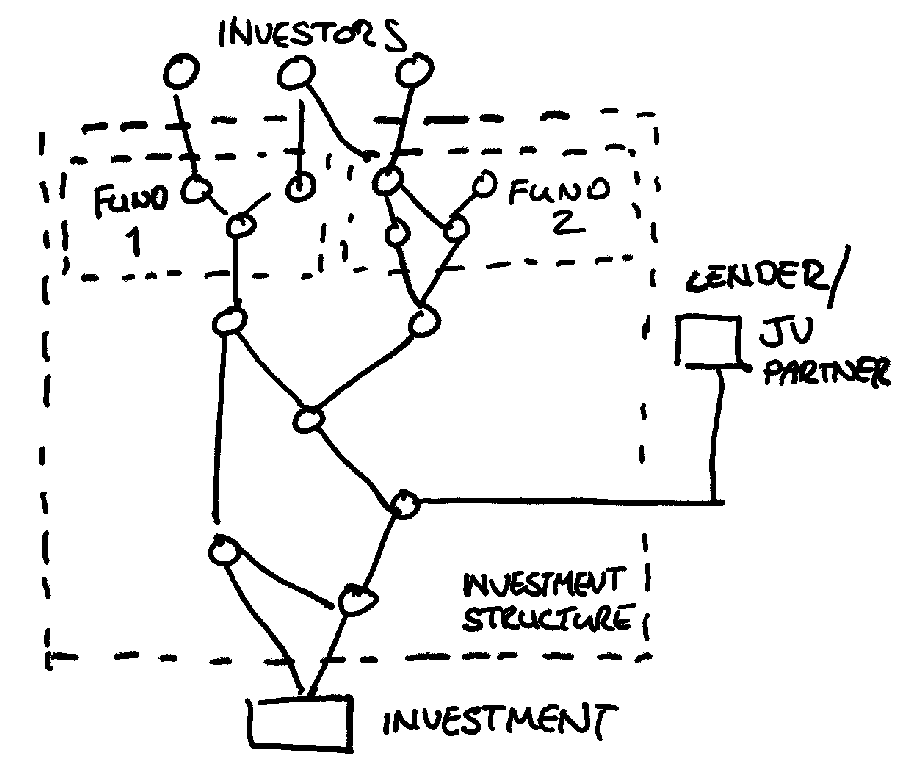 INVESTORS
FUND
1
FUND
2
LENDER/
JV
PARTNER
INVESTMENT
STRUCTURE
INVESTMENT